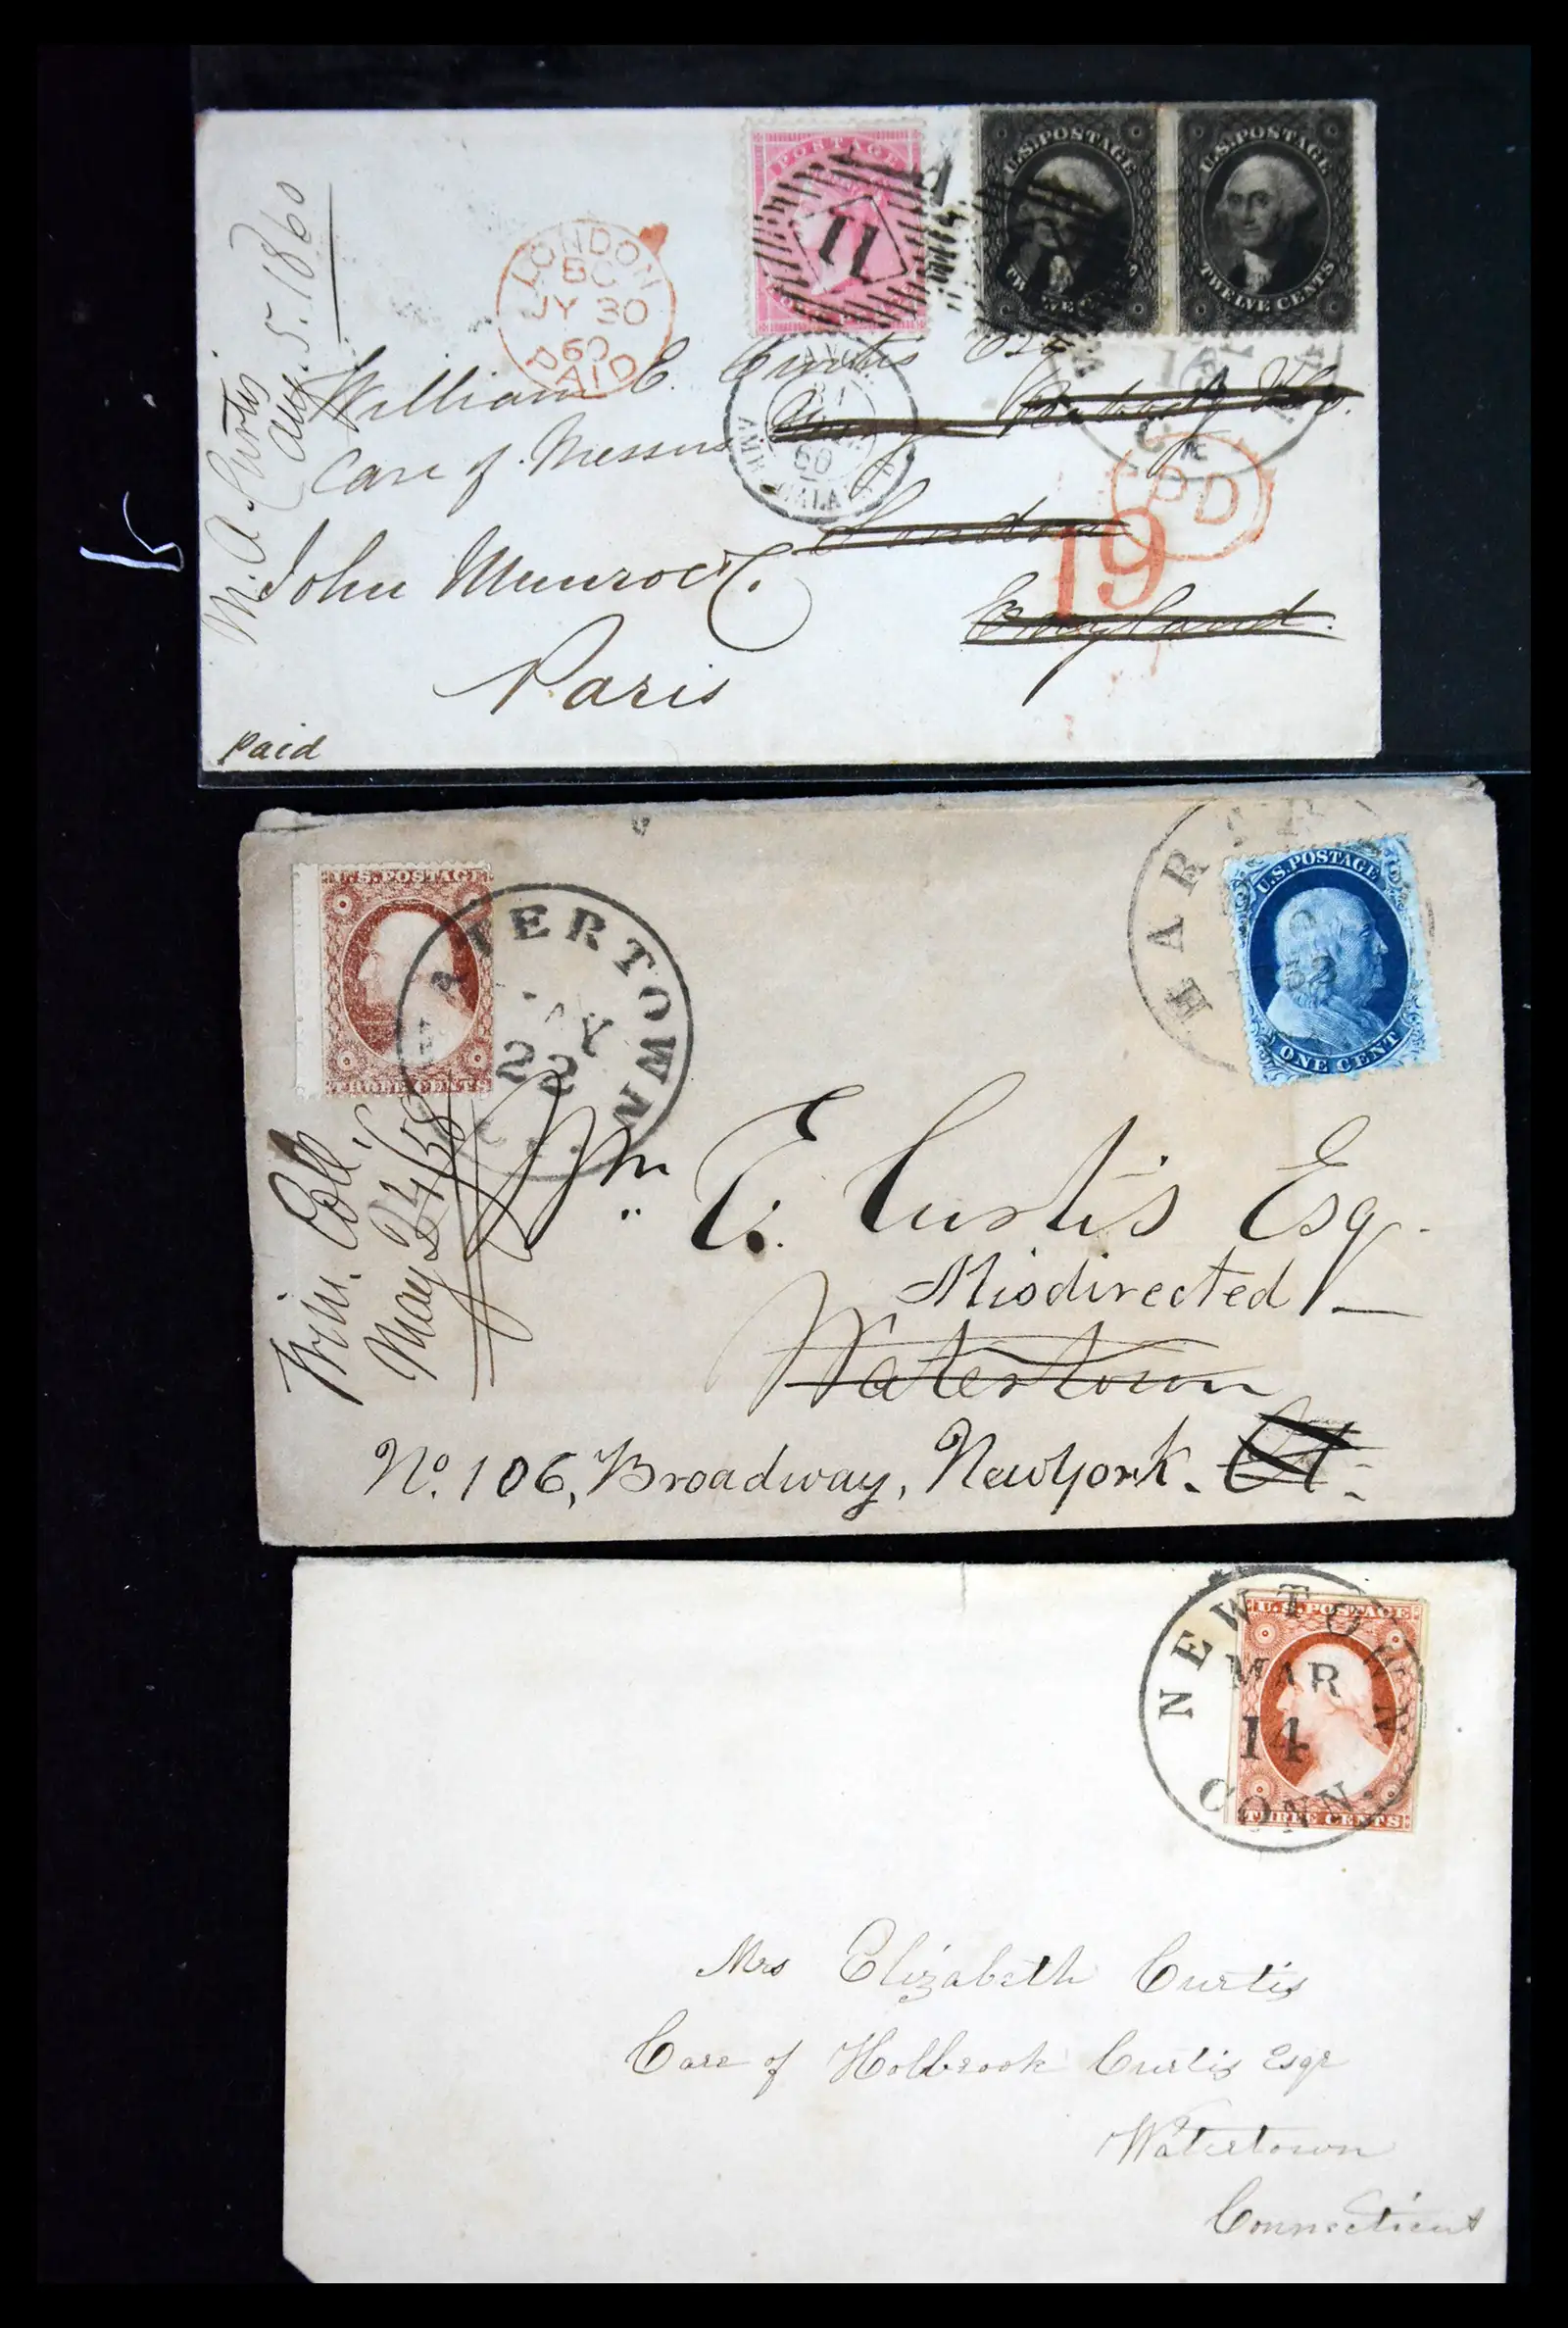 POSTAGE
11
U.S. POSTAGE
TWELVE CENTS
U.S. POSTAGE
TWELVE CENTS
LONDON
JY 30
60
PAID
M. A. Curtis
Aug. 5. 1860
William E. Curtis Esq
Care of Messrs George Peabody & Co.
60
PD
London
19
John Munroe & C.
England.
Paris
Paid
U.S. POSTAGE
THREE CENTS
WATERTOWN
22
HARTF
U.S. POSTAGE
ONE CENT
Trin. Coll
May 24/58
Wm E. Curtis Esq.
Misdirected
Watertown
No. 106, Broadway, New York. Ct.
NEWTOWN
MAR
14
CONN.
U.S. POSTAGE
THREE CENTS
Mrs Elizabeth Curtis
Care of Holbrook Curtis Esqr
Watertown
Connecticut